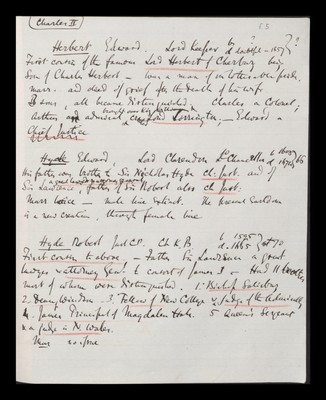 Charles II
Herbert Edward. Lord Keeper b ? d 1657 ?
First cousin of the famous Lord Herbert of Cherbury being
Son of Charles Herbert – was a man of
marr. and died of grief for the death of his wife
3 sons, all became distinguished, Charles a Colonel;
Arthur an admiral cr Lord Torrington, – Edward a
Chief Justice
Hyde Edward, Lord Clarendon Ld Chancellor b 1609 d 1674 / 65
His father was brother to Sir Nicholas Hyde Ch. Just. and of
Sir Lawrence, father of Sir Robert also Ch. Just.
Marr twice – male line extinct. The present Clarendon
is a new creation, through female line.
Hyde Robert Jud C.P. Ch K.B b 1595 d. 1665 / 70
First cousin to above, – Father Sir Lawrence a great
lawyer & attorney Genl to consort of James I – Had 11
most of whom were distinguished. 1. Bishop Salisbury
2. Dean Windsor. 3. Fellow of New College 4. Judge of the Admiralty
James Principal of Magdalen Hale 5 Queen's Sergeant
was judge in N. Wales.
Marr no issue